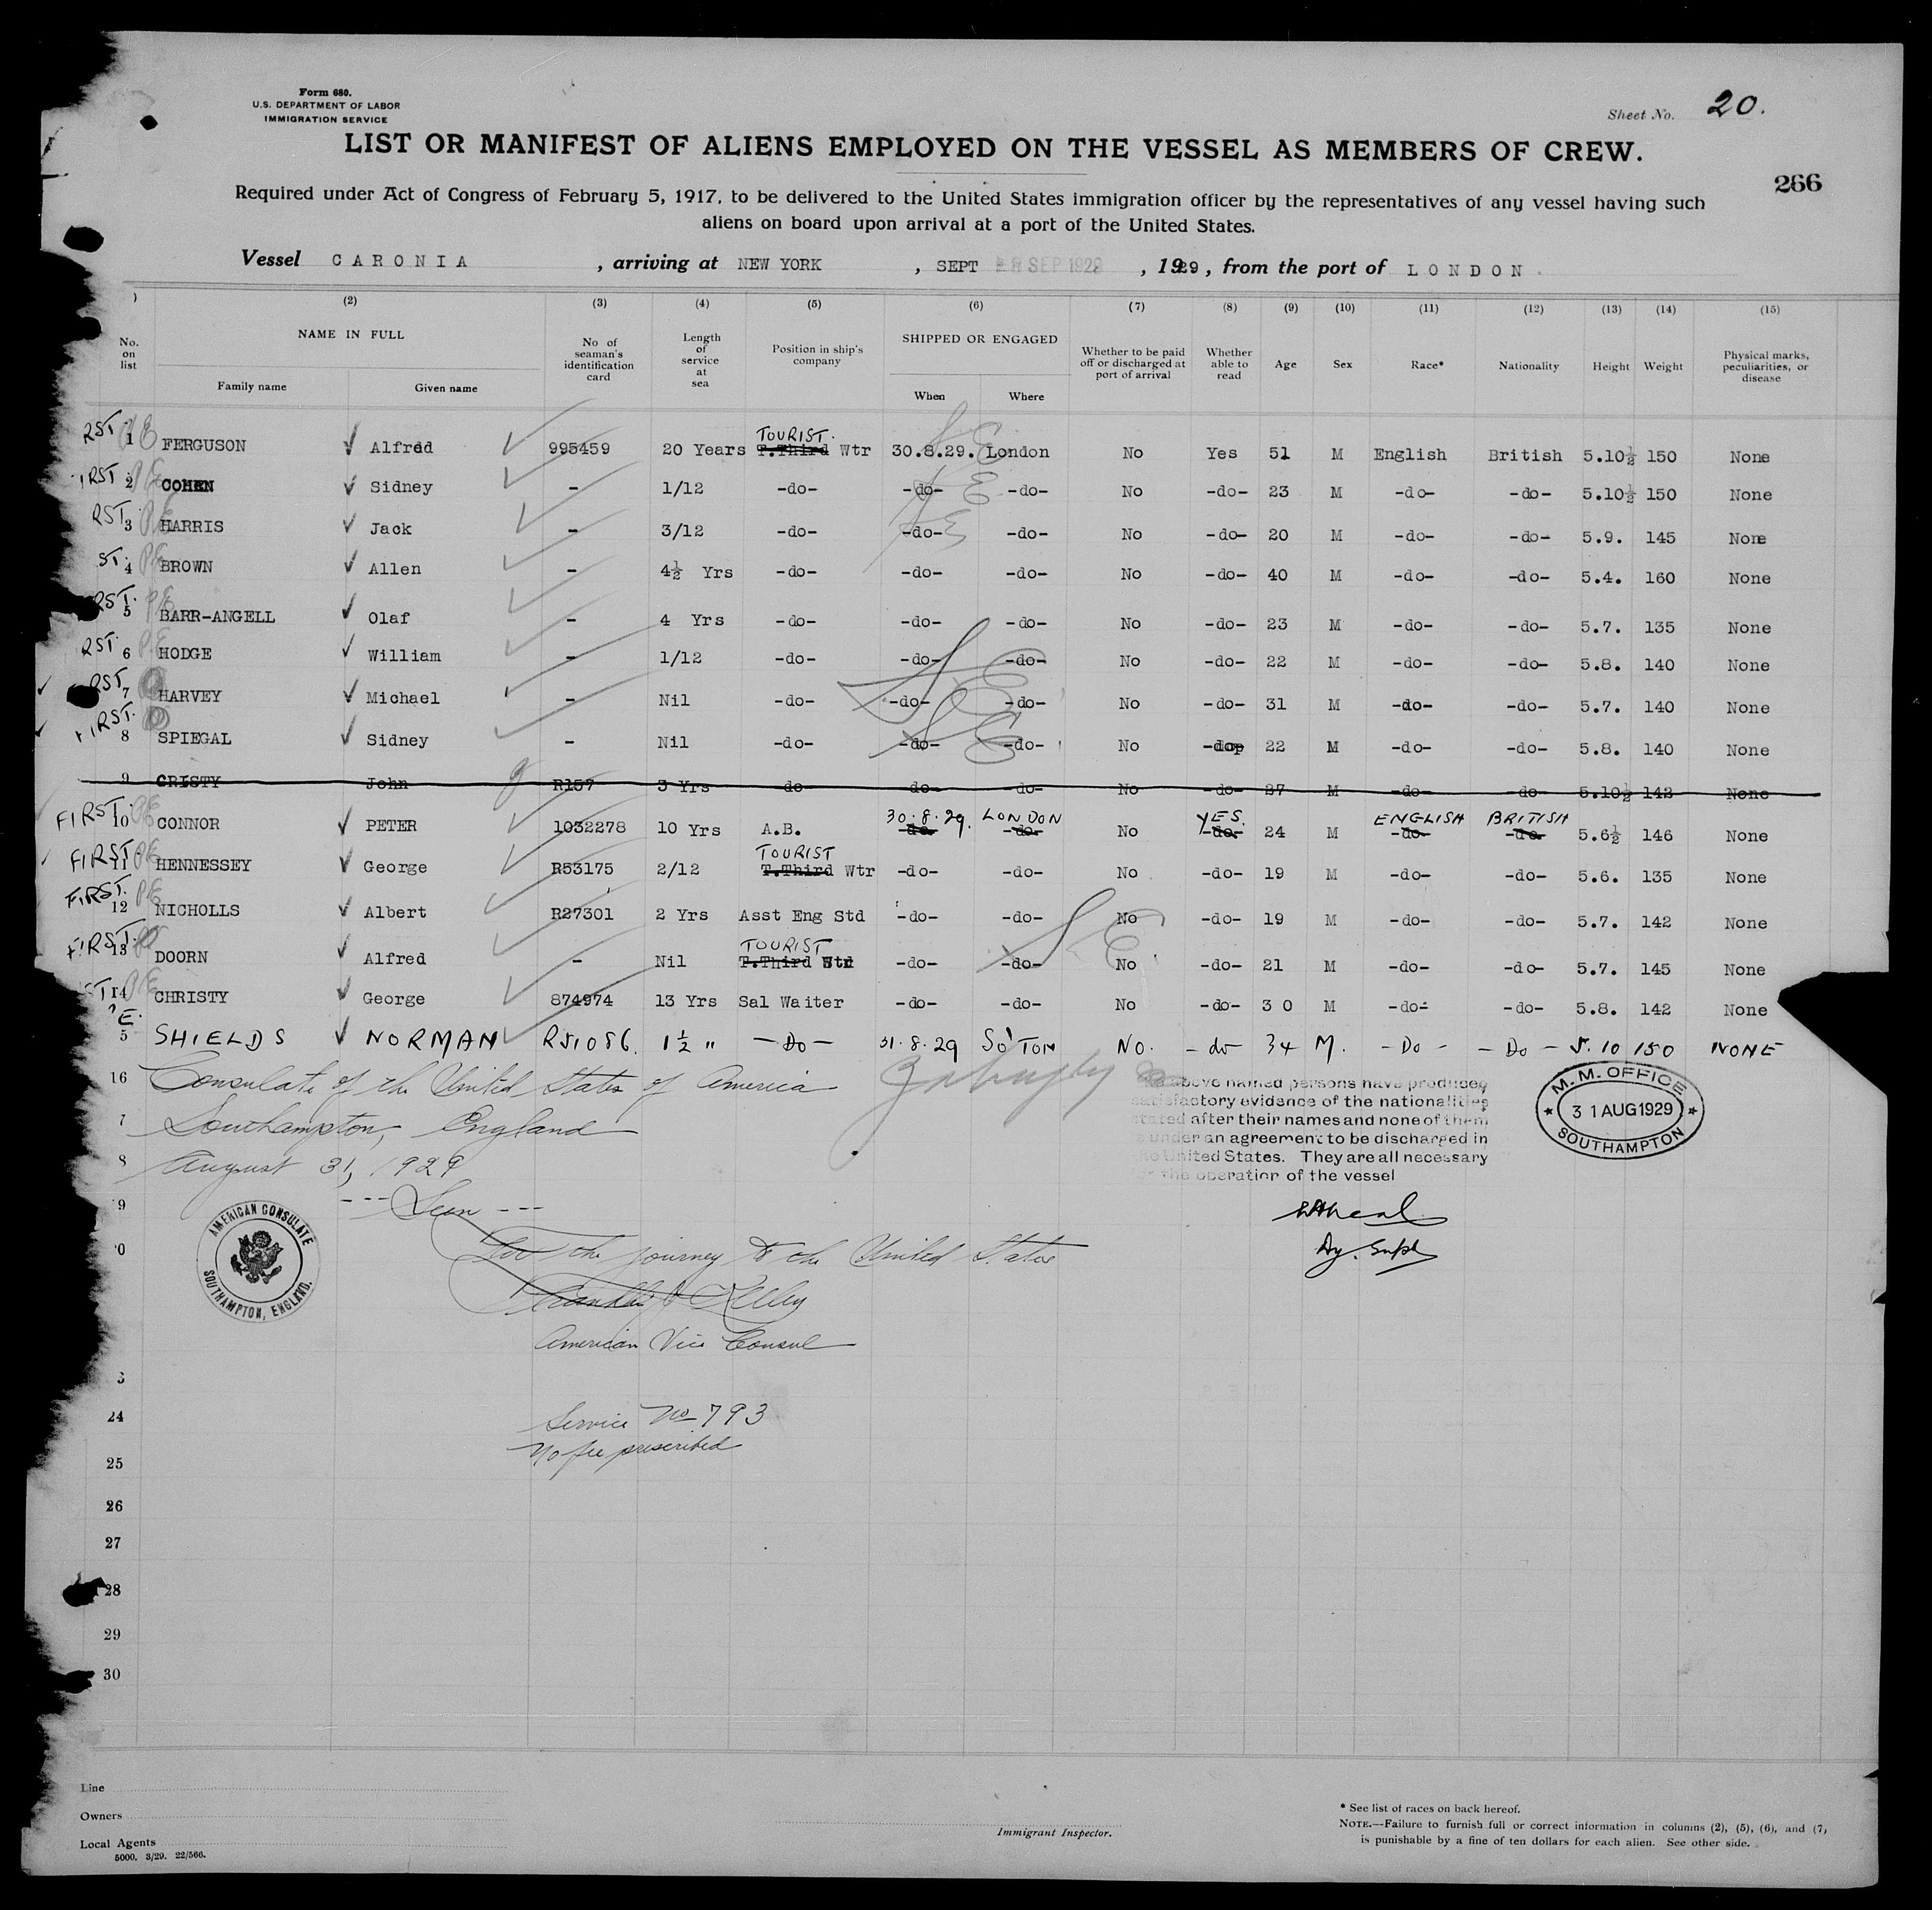 Form 680.
U.S. DEPARTMENT OF LABOR
IMMIGRATION SERVICE
Sheet No. 20.
LIST OR MANIFEST OF ALIENS EMPLOYED ON THE VESSEL AS MEMBERS OF CREW.
266
Required under Act of Congress of February 5, 1917, to be delivered to the United States immigration officer by the representatives of any vessel having such
aliens on board upon arrival at a port of the United States.
Vessel CARONIA , arriving at NEW YORK , SEPT SEP 192 , 1929 , from the port of LONDON
(2) (3) (4) (5) (6) (7) (8) (9) (10) (11) (12) (13) (14) (15)
No. on list
NAME IN FULL
Family name
Given name
No of seaman's identification card
Length of service at sea
Position in ship's company
SHIPPED OR ENGAGED
When
Where
Whether to be paid off or discharged at port of arrival
Whether able to read
Age
Sex
Race*
Nationality
Height
Weight
Physical marks, peculiarities, or disease
RST 1 FERGUSON Alfred 995459 20 Years TOURIST T.Third Wtr 30.8.29. London No Yes 51 M English British 5.10½ 150 None
IRST 2 COHEN Sidney - 1/12 -do- -do- -do- No -do- 23 M -do- -do- 5.10½ 150 None
RST 3 HARRIS Jack - 3/12 -do- -do- -do- No -do- 20 M -do- -do- 5.9. 145 None
ST 4 BROWN Allen - 4½ Yrs -do- -do- -do- No -do- 40 M -do- -do- 5.4. 160 None
RST 5 BARR-ANGELL Olaf - 4 Yrs -do- -do- -do- No -do- 23 M -do- -do- 5.7. 135 None
RST 6 HODGE William - 1/12 -do- -do- -do- No -do- 22 M -do- -do- 5.8. 140 None
RST 7 HARVEY Michael - Nil -do- -do- -do- No -do- 31 M -do- -do- 5.7. 140 None
FIRST. 8 SPIEGAL Sidney - Nil -do- -do- -do- No -dop 22 M -do- -do- 5.8. 140 None
9 CRISTY John R157 3 Yrs -do- -do- -do- No -do- 27 M -do- -do- 5.10½ 142 None
FIRST 10 CONNOR PETER 1032278 10 Yrs A.B. 30.8.29. -do- LONDON -do- No YES. -do- 24 M ENGLISH -do- BRITISH -do- 5.6½ 146 None
FIRST 11 HENNESSEY George R53175 2/12 TOURIST T.Third Wtr -do- -do- No -do- 19 M -do- -do- 5.6. 135 None
FIRST. 12 NICHOLLS Albert R27301 2 Yrs Asst Eng Std -do- -do- No -do- 19 M -do- -do- 5.7. 142 None
FIRST. 13 DOORN Alfred - Nil TOURIST T.Third Std -do- -do- No -do- 21 M -do- -do- 5.7. 145 None
ST 14 CHRISTY George 874974 13 Yrs Sal Waiter -do- -do- No -do- 30 M -do- -do- 5.8. 142 None
5 SHIELDS NORMAN R51086. 1½ " -Do- 31.8.29 So'TON No. -do- 34 M. -Do- -Do- 5.10 150 NONE
16 Consulate of the United States of America
7 Southampton, England
8 August 31, 1929
9 --- Seen ---
0 For the journey to the United States
Kelley
American Vice Consul
above named persons have produced
satisfactory evidence of the nationalities
stated after their names and none of them
is under an agreement to be discharged in
the United States. They are all necessary
for the operation of the vessel
Dy. Supt
M. M. OFFICE
31 AUG 1929
SOUTHAMPTON
AMERICAN CONSULATE
SOUTHAMPTON, ENGLAND.
3
24
Service No 793
No fee prescribed
25
26
27
28
29
30
Line
Owners
Local Agents
5000. 3/29. 22/566.
Immigrant Inspector.
* See list of races on back hereof.
NOTE.—Failure to furnish full or correct information in columns (2), (5), (6), and (7,
is punishable by a fine of ten dollars for each alien. See other side.